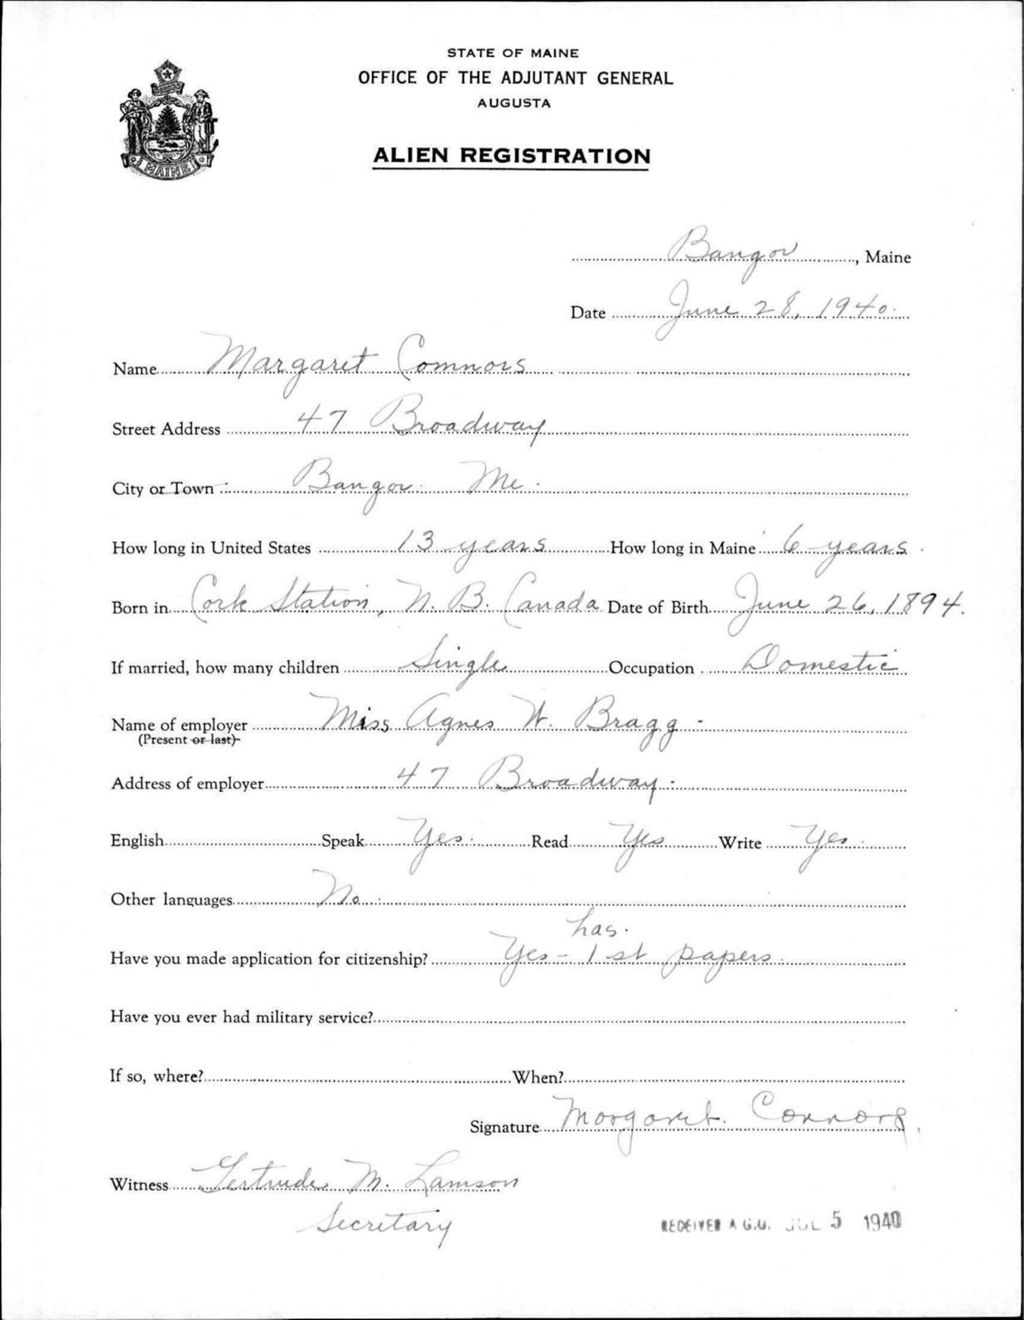 STATE OF MAINE
OFFICE OF THE ADJUTANT GENERAL
AUGUSTA
ALIEN REGISTRATION
MAINE
Bangor, Maine
Date June 28, 1940.
Name Margaret Connors
Street Address 47 Broadway
City or Town Bangor Me.
How long in United States 13 years How long in Maine 6 years.
Born in Cork Station, N. B. Canada Date of Birth June 26, 1894.
If married, how many children Single Occupation Domestic
Name of employer Miss Agnes W. Bragg -
(Present or last)
Address of employer 47 Broadway.
English Speak Yes. Read Yes Write Yes.
Other languages No.
has.
Have you made application for citizenship? Yes - 1st papers
Have you ever had military service?
If so, where? When?
Signature Margaret. Connors.
Witness Gertrude M. Lamson
Secretary
RECEIVED A.G.O. JUL 5 1940